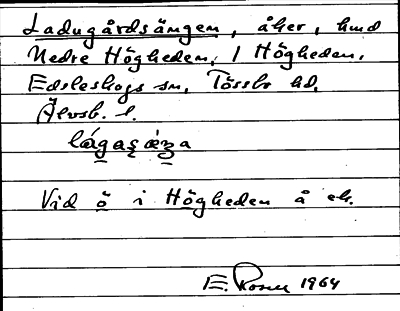 Ladugårdsängen, åker, hmd
Nedre Högheden, 1 Högheden,
Edsleskogs sn, Tössbo hd,
Älvsb. l.
lágaṣ ǽŋa
Vid ö i Högheden å ek.
E. Rosen 1964